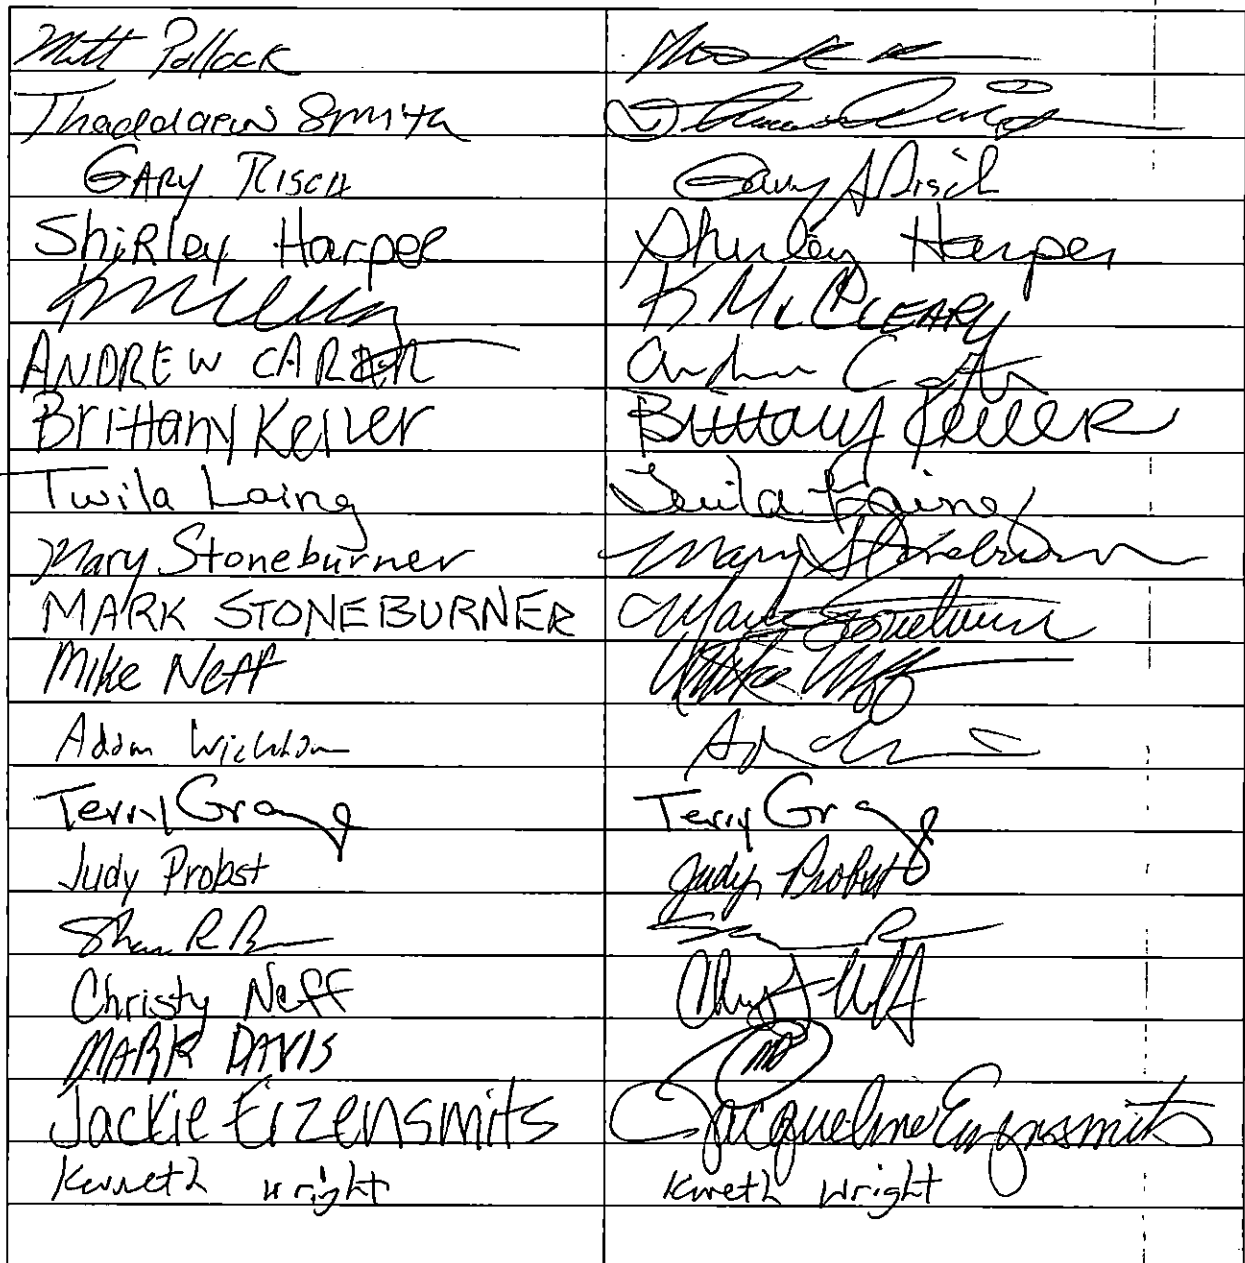 Matt Pollock
Thaddaeus Smith
GARY RISCH Gary A Risch
ShiRley Harper Shirley Harper
K McCLEARY
ANDREW CARTER Andrew Carter
Brittany Keller Brittany Keller
Twila Laing Twila Laing
Mary Stoneburner Mary Stoneburner
MARK STONEBURNER Mark Stoneburner
Mike Neff Mike Neff
Adam
Terry Gray Terry Gray
Judy Probst Judy Probst
R
Christy Neff Christy Neff
MARK DAVIS MD
Jackie Eizensmits Jacqueline Eizensmits
Kenneth wright Kenneth wright